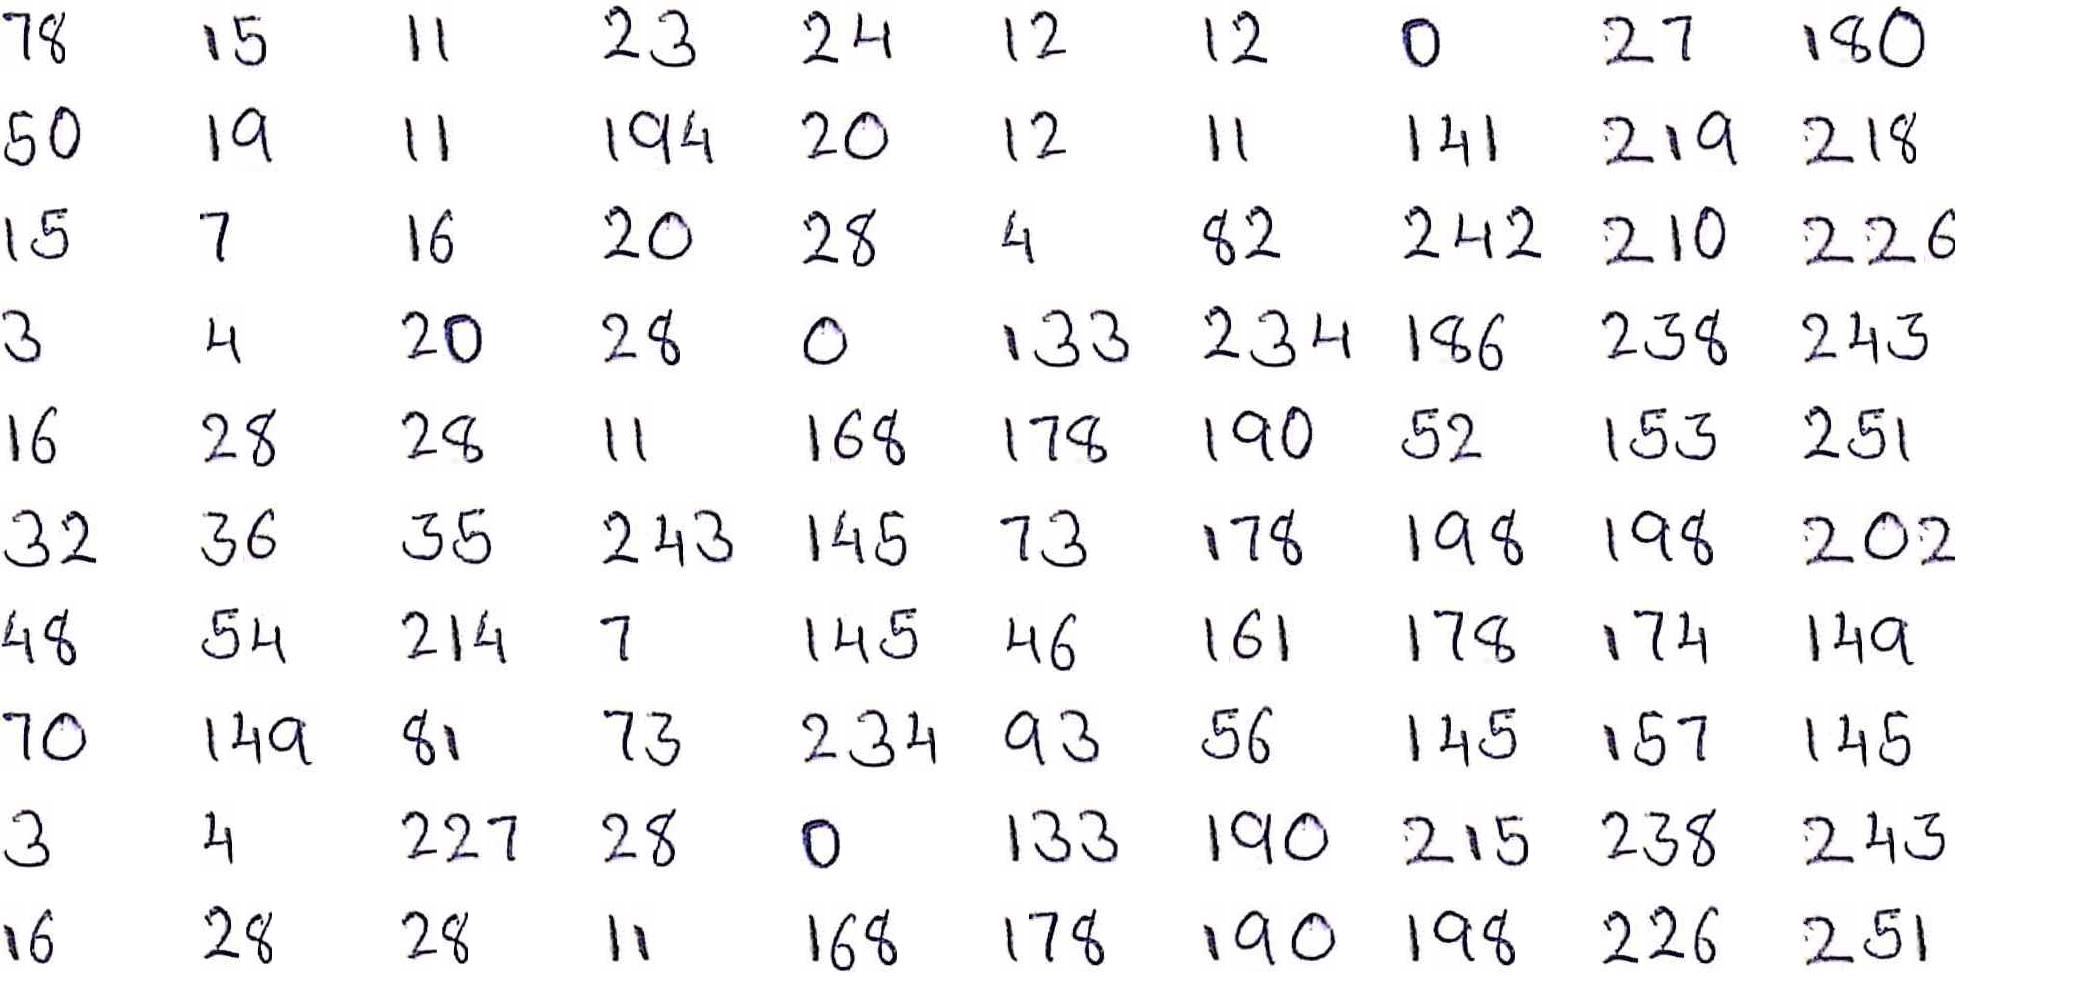 78 15 11 23 24 12 12 0 27 180
50 19 11 194 20 12 11 141 219 218
15 7 16 20 28 4 82 242 210 226
3 4 20 28 0 133 234 186 238 243
16 28 28 11 168 178 190 52 153 251
32 36 35 243 145 73 178 198 198 202
48 54 214 7 145 46 161 178 174 149
70 149 81 73 234 93 56 145 157 145
3 4 227 28 0 133 190 215 238 243
16 28 28 11 168 178 190 198 226 251